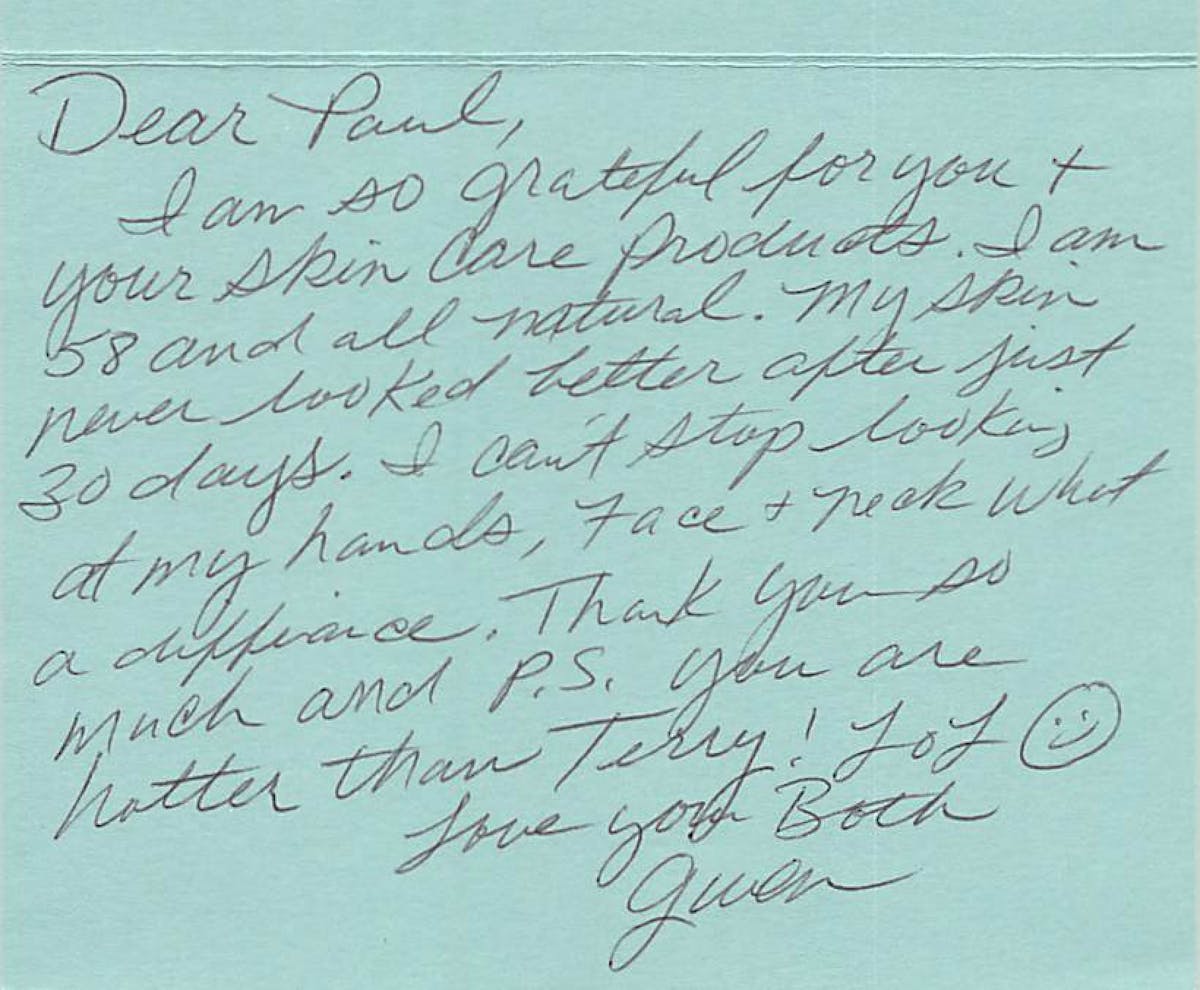 Dear Paul,
I am so grateful for you +
your skin care products. I am
58 and all natural. My skin
never looked better after just
30 days. I can't stop looking
at my hands, Face + neck what
a differance. Thank you so
much and P.S. you are
hotter than Terry! LOL
Love you Both
Gwen